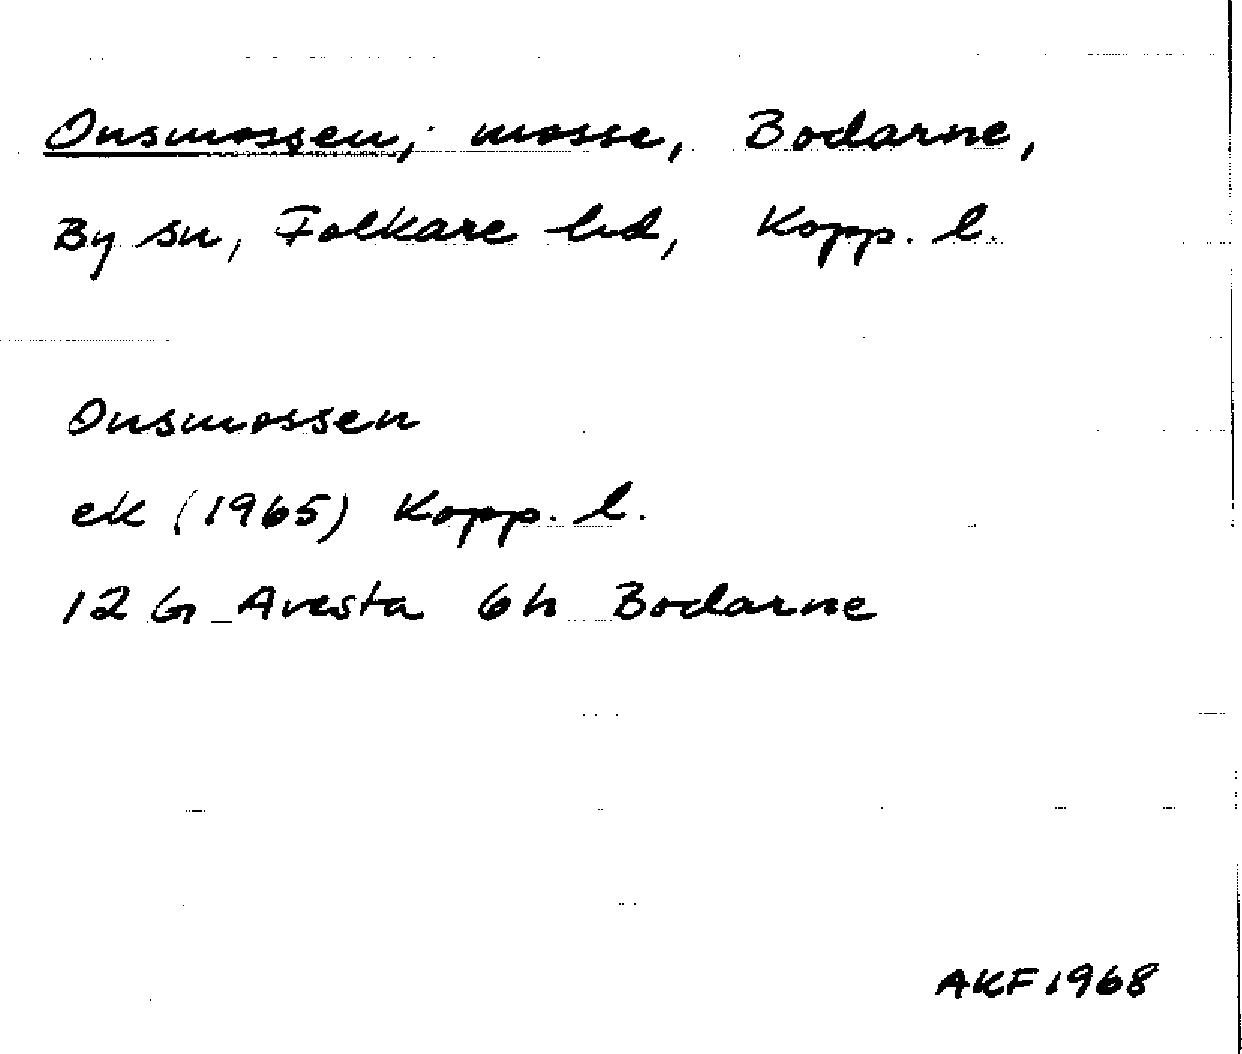 Onsmossen, mosse, Bodarne,
By sn, Folkare hd, Kopp. l.
Onsmossen
ek (1965) Kopp. l.
12 G Avesta 6h Bodarne
AKF 1968